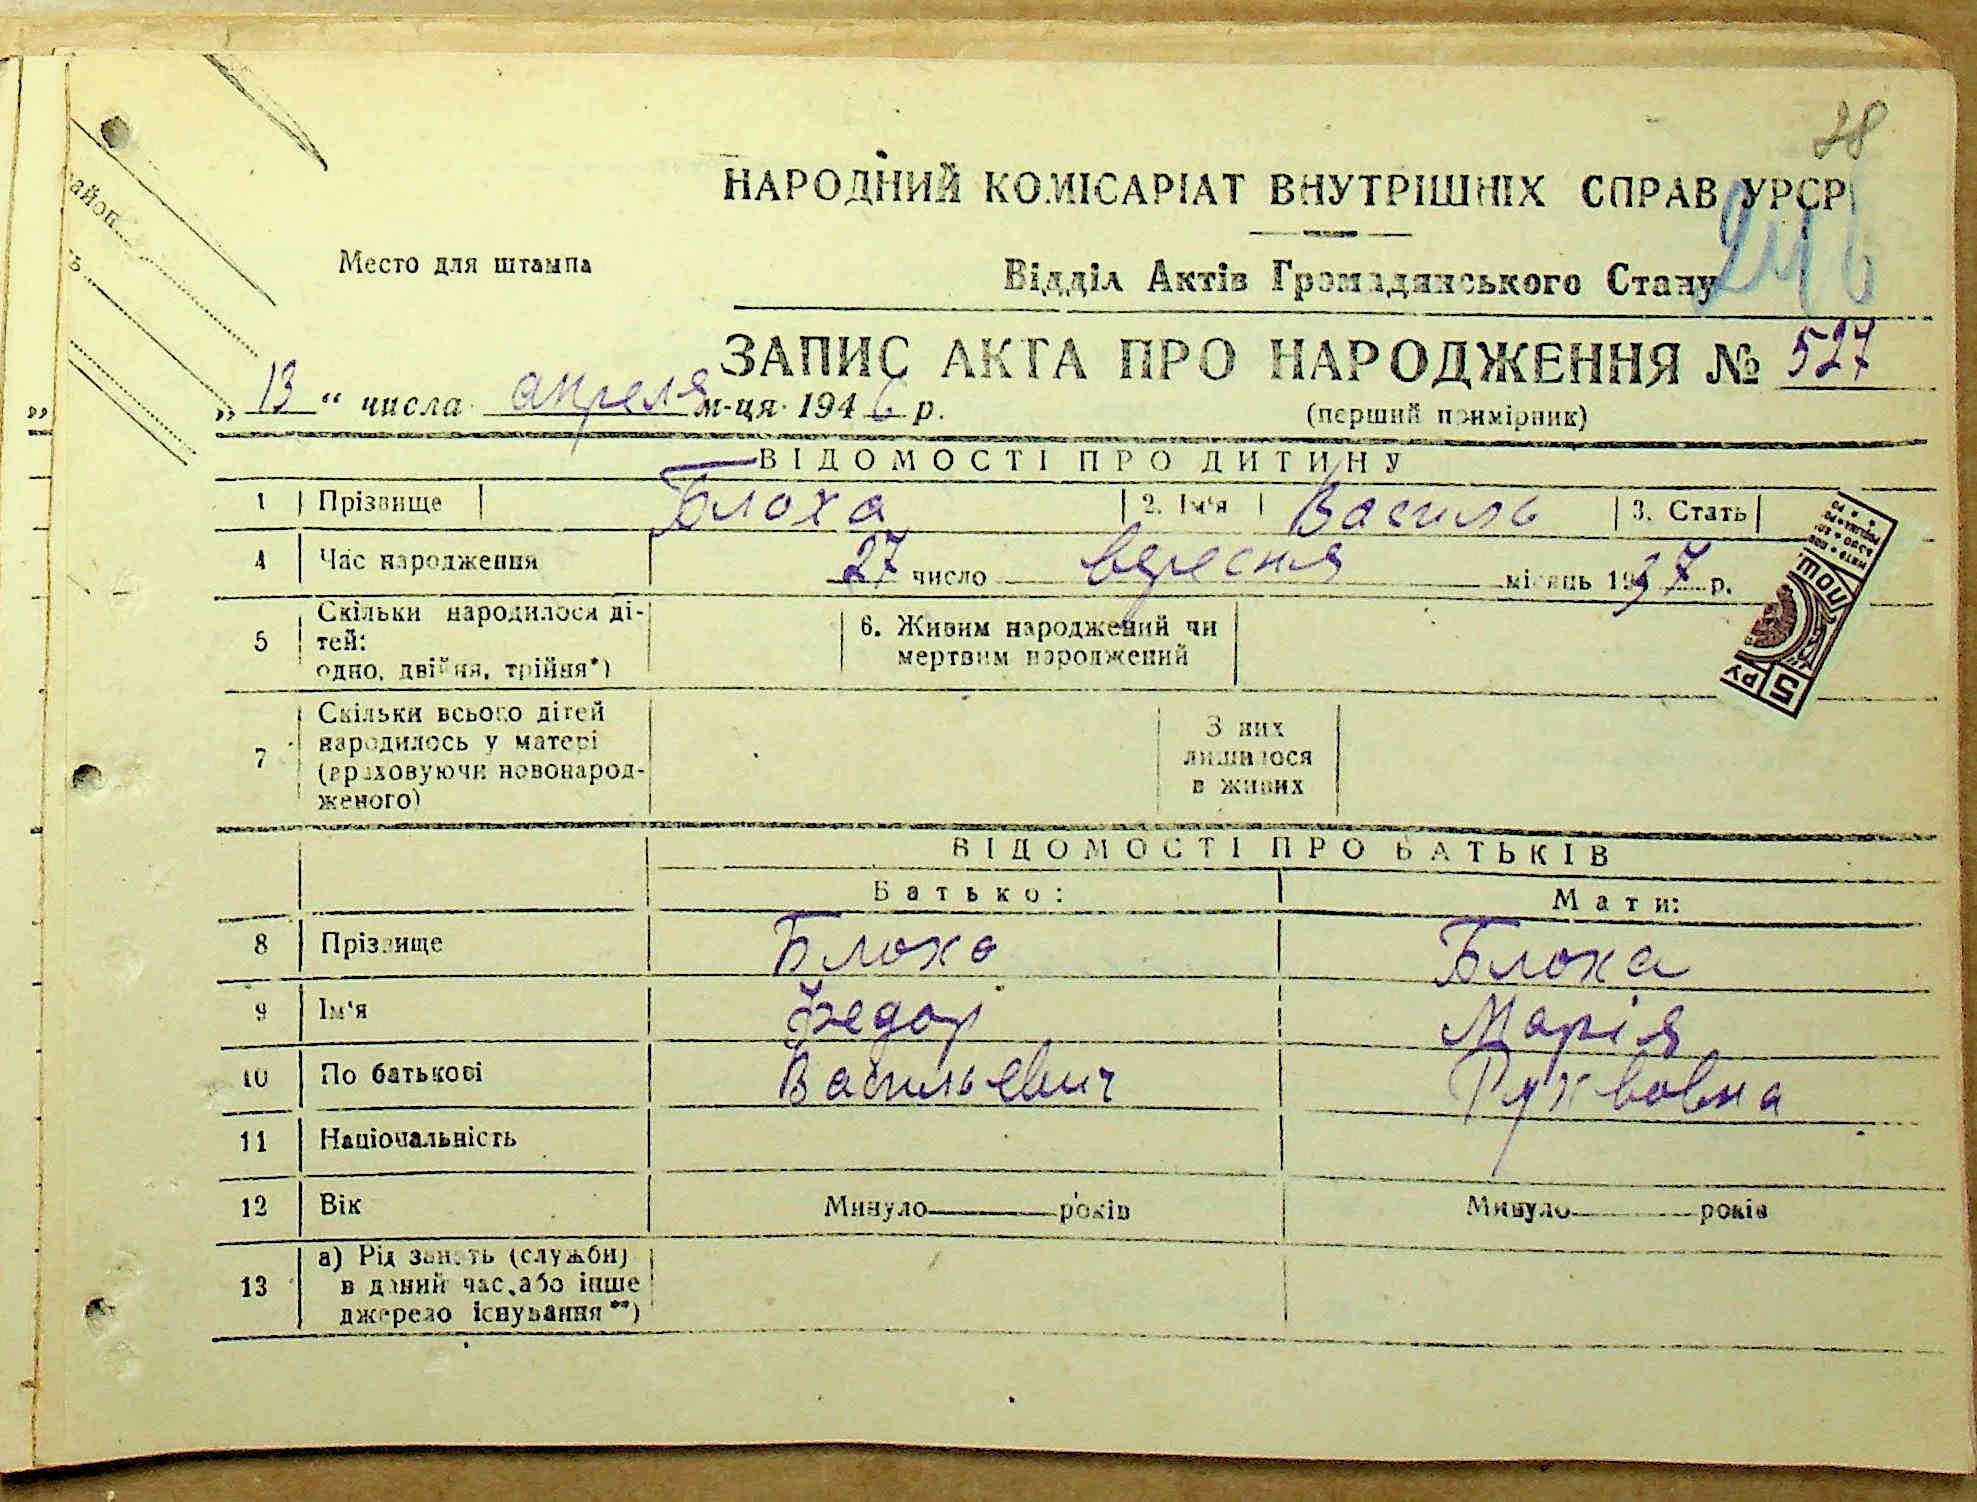 28
НАРОДНИЙ КОМІСАРІАТ ВНУТРІШНІХ СПРАВ УРСР
246
Место для штампа
Відділ Актів Громадянського Стану
ЗАПИС АКТА ПРО НАРОДЖЕННЯ № 527
„ 13 “ числа апреля м-ця 1946 р.
(перший примірник)
ВІДОМОСТІ ПРО ДИТИНУ
1 Прізвище Блоха 2. Ім'я Василь 3. Стать
4 Час народження 27 число вересня місяць 1937 р.
5 Скільки народилося ді-
тей:
одно, двійня, трійня*)
6. Живим народжений чи
мертвим народжений
7 Скільки всього дітей
народилось у матері
(враховуючи новонарод-
женого)
З них
лишилося
в живих
ВІДОМОСТІ ПРО БАТЬКІВ
Батько: Мати:
8 Прізвище Блоха Блоха
9 Ім'я Федор Марія
10 По батькові Васильевич
11 Національність
12 Вік Минуло років Минуло років
13 а) Рід занять (служби)
в даний час, або інше
джерело існування**)
5 РУ
ПОШ
айон